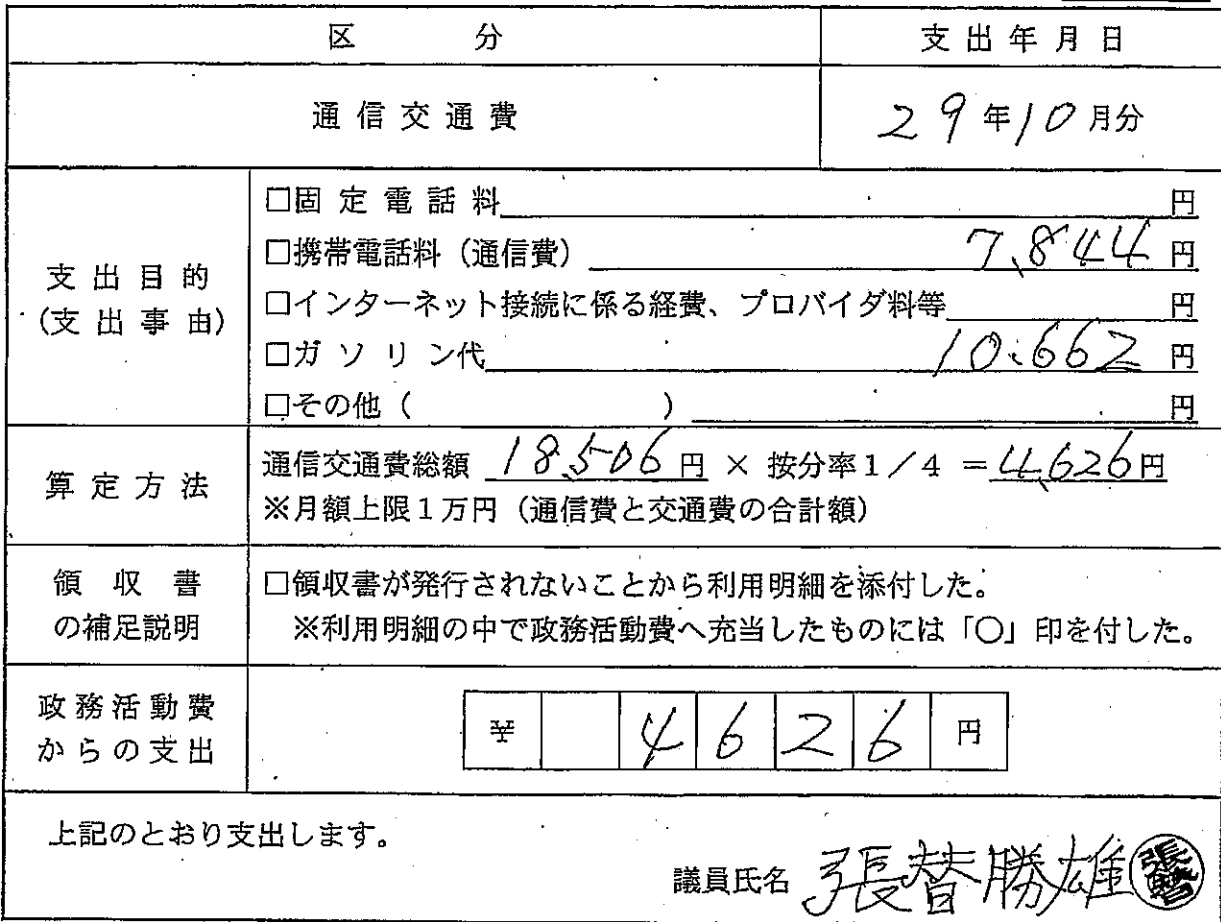 区分 支出年月日
通信交通費 29年10月分
支出目的(支出事由)
□固定電話料 円
□携帯電話料（通信費） 7,844円
□インターネット接続に係る経費、プロバイダ料等 円
□ガソリン代 10,662円
□その他（ ） 円
算定方法
通信交通費総額 18,506円 × 按分率1／4 ＝4,626円
※月額上限1万円（通信費と交通費の合計額）
領収書の補足説明
□領収書が発行されないことから利用明細を添付した。
※利用明細の中で政務活動費へ充当したものには「○」印を付した。
政務活動費からの支出
¥ 4626円
上記のとおり支出します。
議員氏名 張替勝雄 張替